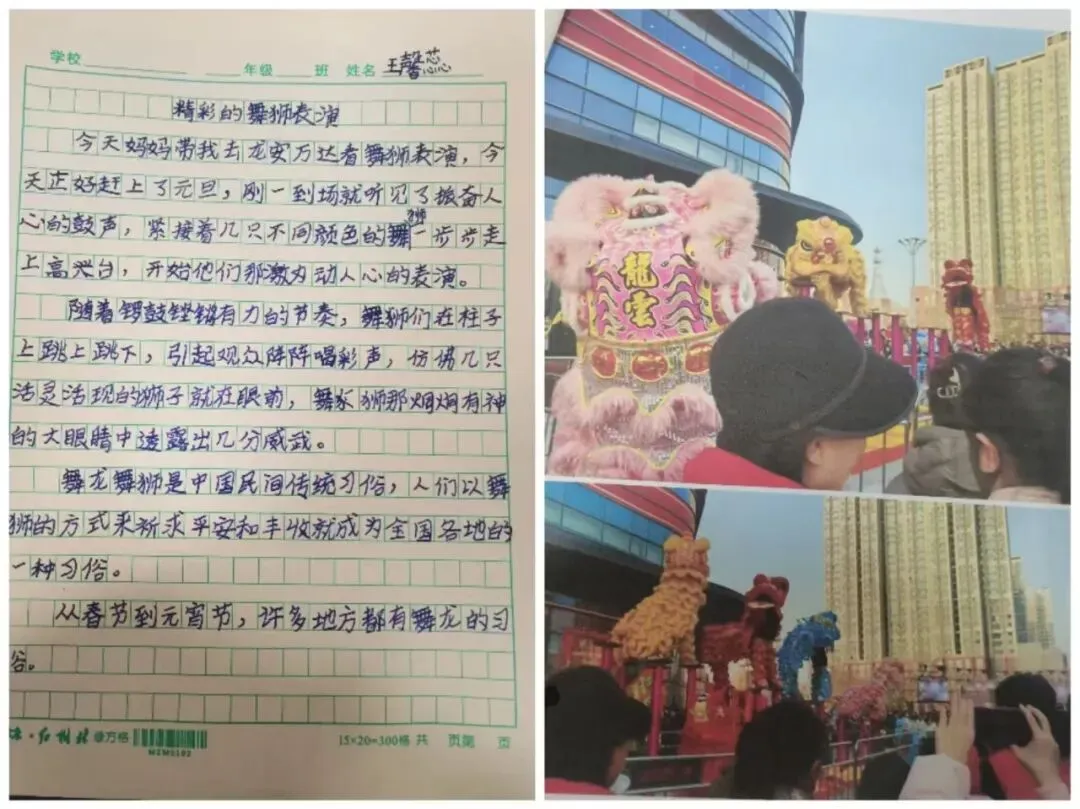 学校 年级 班 姓名 王馨蕊
精彩的舞狮表演
今天妈妈带我去龙安万达看舞狮表演，今
天正好赶上了元旦，刚一到场就听见了振奋人
心的鼓声，紧接着几只不同颜色的舞狮一步步走
上高台，开始他们那激动人心的表演。
随着锣鼓铿锵有力的节奏，舞狮们在柱子
上跳上跳下，引起观众阵阵唱彩声，仿佛几只
活灵活现的狮子就在眼前，舞狮那炯炯有神
的大眼睛中透露出几分威武。
舞龙舞狮是中国民间传统习俗，人们以舞
狮的方式来祈求平安和丰收就成为全国各地的
一种习俗。
从春节到元宵节，许多地方都有舞龙的习
俗。
方格
MEM5102
15×20=300格 共 页第 页
龍雲